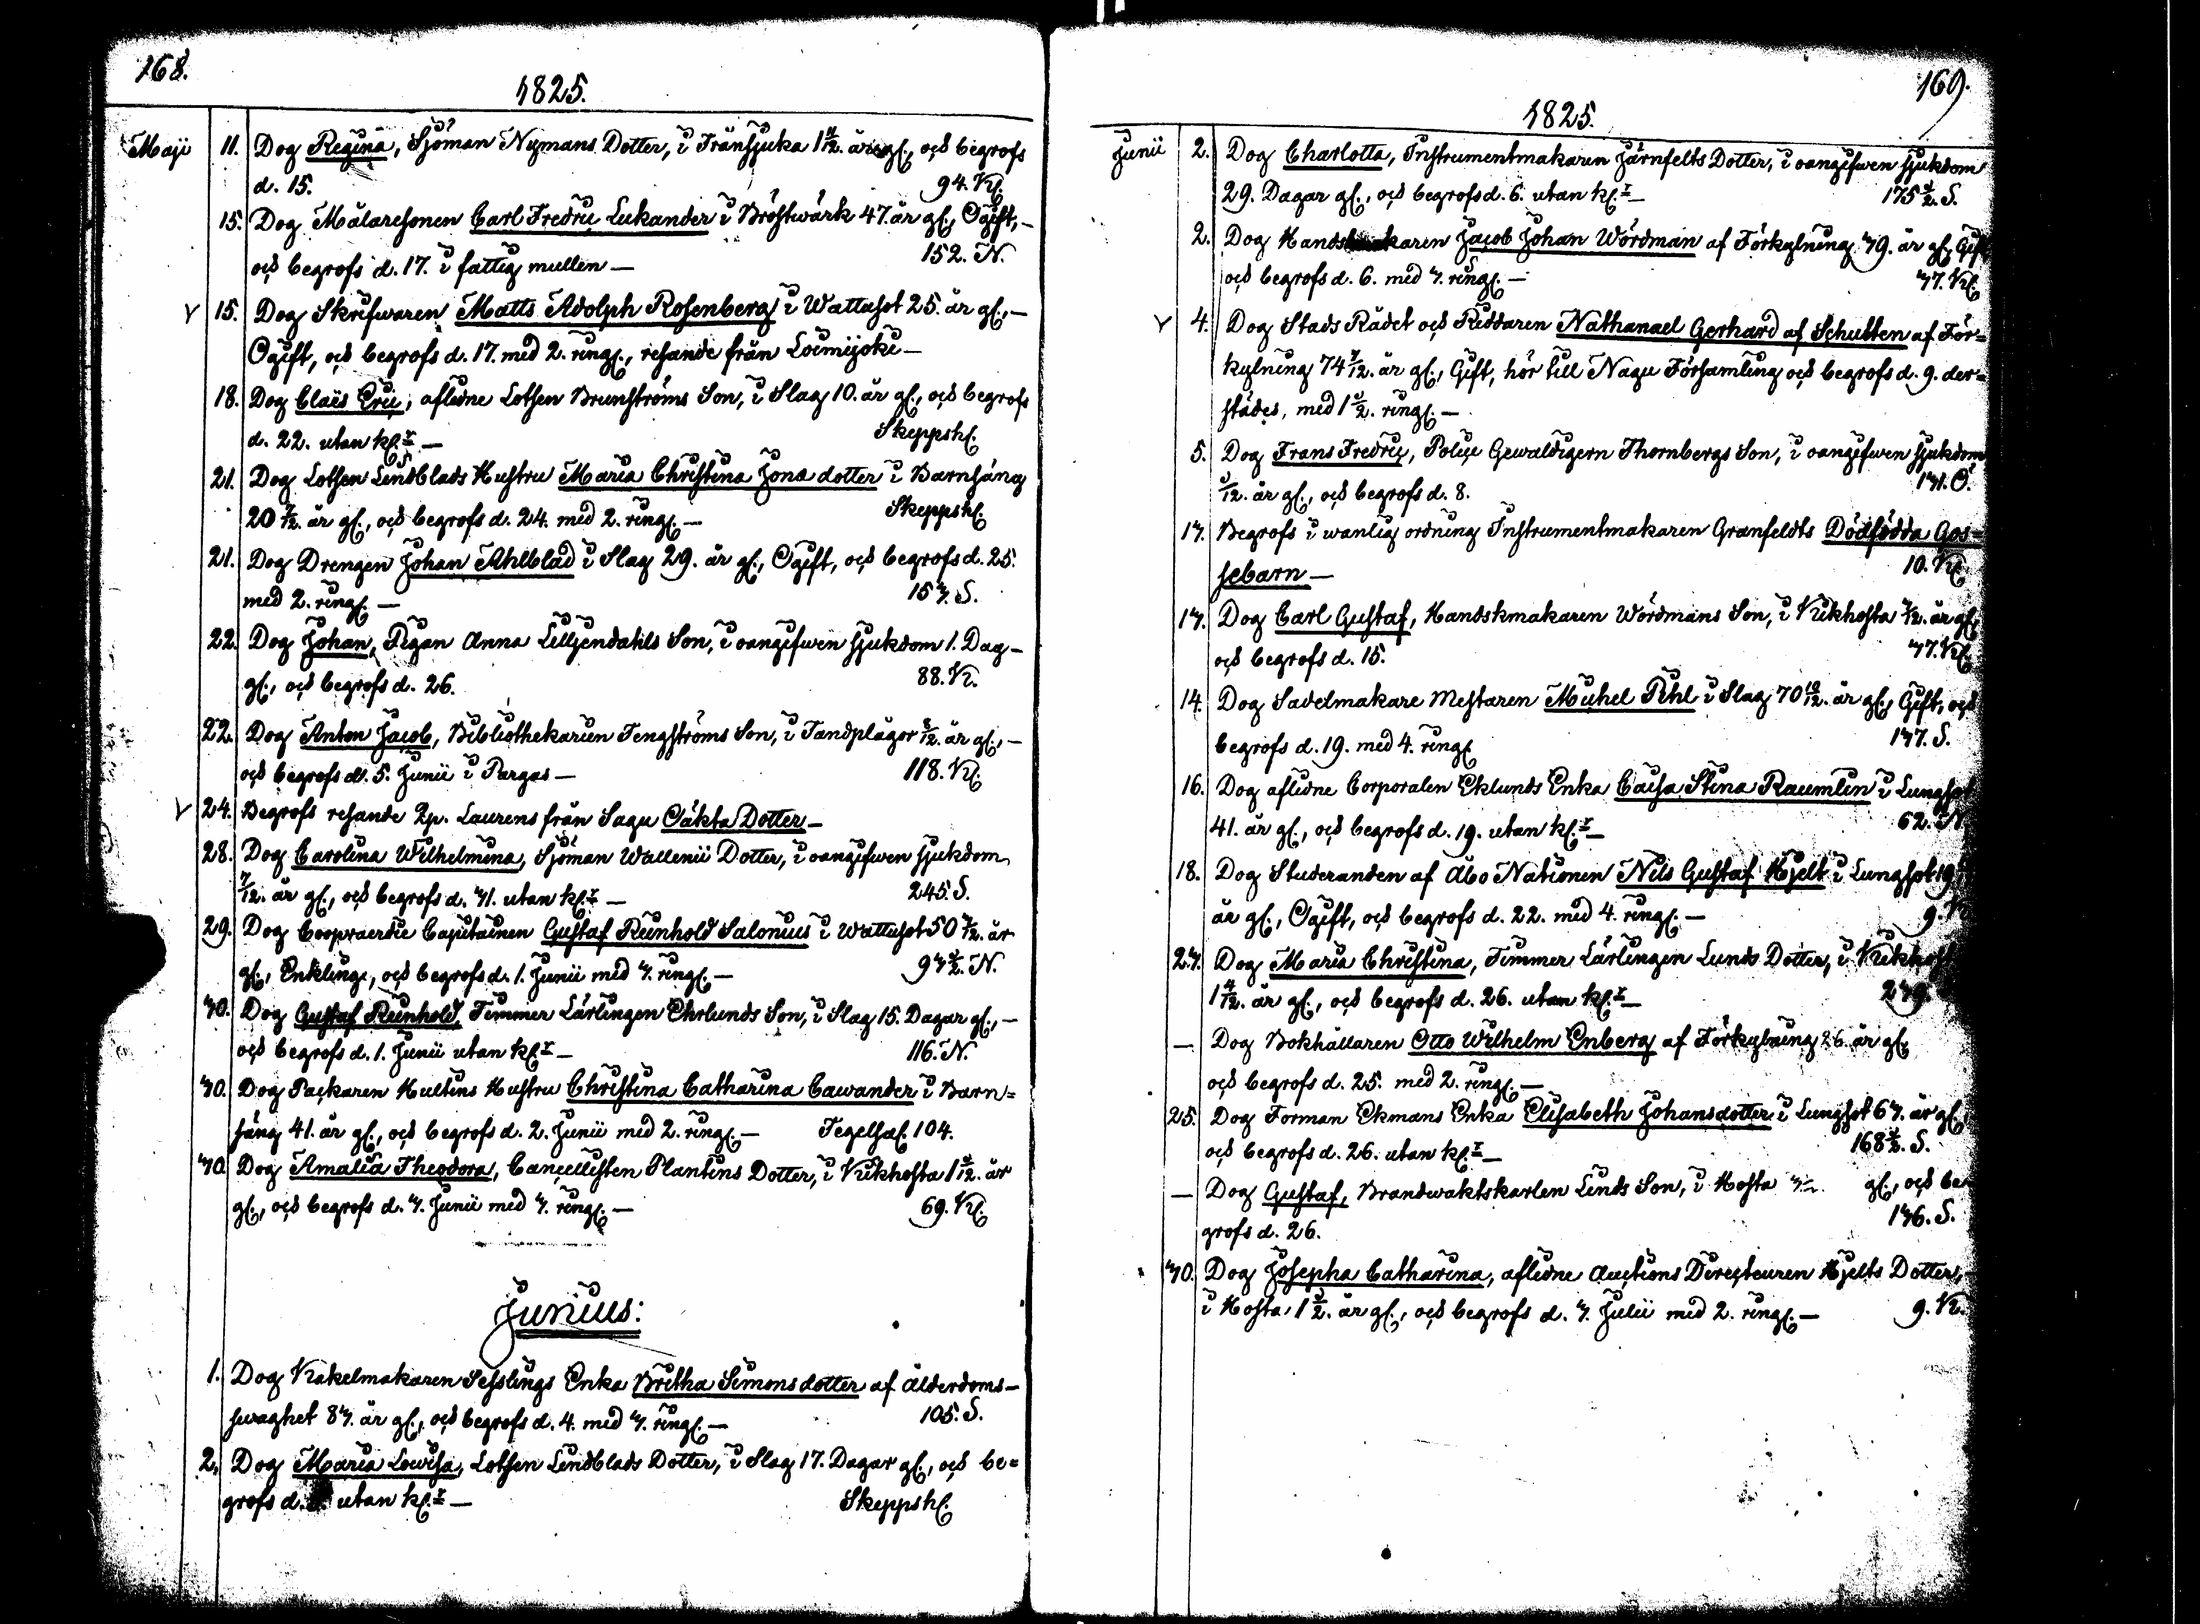 168.
1825.
Maji 11. Dog Regina, Sjöman Nymans Dotter, i Fränsjuka 1 11/12. år gl., och begrofs
d. 15. 94. Kl.
15. Dog Målaresonen Carl Fredric Lukander i Bröstwärk 47. år gl., Ogift, –
och begrofs d. 17. i fattig mullen – 152. N.
V 15. Dog Skrifwaren Matts Adolph Rosenberg i Wattusot 25. år gl., –
Ogift, och begrofs d. 17. med 2. ringl., resande från Loimijoki –
18. Dog Claës Eric, aflidne Lotsen Brunströms Son, i Slag 10. år gl., och begrofs
d. 22. utan kl.r – Skeppsh.
21. Dog Lotsen Lindblads Hustru Maria Christina Jonæ dotter i Barnsäng
20 7/12. år gl., och begrofs d. 24. med 2. ringl. – Skeppsh.
21. Dog Drengen Johan Ahlblad i Slag 29. år gl., Ogift, och begrofs d. 25.
med 2. ringl. – 153. S.
22. Dog Johan, Pigan Anna Lilljendahls Son, i oangifwen sjukdom 1. Dag –
gl., och begrofs d. 26. 88. K.
22. Dog Anton Jacob, Bibliothekarien Tengströms Son, i Tandplågor 8/12. år gl., –
och begrofs d. 5. Junii i Pargas – 118. Kl.
V 24. Begrofs resande Zp. Laurens från Sagu Oäkta Dotter –
28. Dog Carolina Wilhelmina, Sjöman Wallenii Dotter, i oangifwen sjukdom
7/12. år gl., och begrofs d. 31. utan kl.r – 245. S.
29. Dog Coopvaerdie Capitainen Gustaf Reinhold Salonius i Wattusot 50 7/12. år
gl., Enkling, och begrofs d. 1. Junii med 3. ringl. – 93 1/2. N.
30. Dog Gustaf Reinhold, Timmer Lärlingen Ehrlunds Son, i Slag 15. Dagar gl., –
och begrofs d. 1. Junii utan kl.r – 116. N.
30. Dog Packaren Hultins Hustru Christina Catharina Cawander i Barn=
säng 41. år gl., och begrofs d. 2. Junii med 2. ringl. – Tegelsal. 104.
30. Dog Amalia Theodora, Cancellisten Plantins Dotter, i Kikhosta 1 3/12. år
gl., och begrofs d. 3. Junii med 3. ringl. – 69. Kl.
Junius:
1. Dog Kakelmakaren Sesslings Enka Britha Simonsdotter af ålderdoms –
swaghet 83. år gl., och begrofs d. 4. med 3. ringl. – 105. S.
2. Dog Maria Lowisa, Lotsen Lindblads Dotter, i Slag 17. Dagar gl., och be=
grofs d. utan kl.r – Skeppsh.
169.
1825.
Junii 2. Dog Charlotta, Instrumentmakaren Järnfelts Dotter, i oangifwen sjukdom
29. Dagar gl., och begrofs d. 6. utan kl.r – 175 1/2. S.
2. Dog Handskmakaren Jacob Johan Wördman af Förkylning 39. år gl., Gift
och begrofs d. 6. med 3. ringl. – 37. Kl.
V 4. Dog Stads Rådet och Riddaren Nathanael Gerhard af Schultén af För=
kylning 74 7/12. år gl., Gift, hör till Nagu Församling och begrofs d. 9. der=
städes, med 1 1/2. ringl. –
5. Dog Frans Fredric, Police Gewaldigern Thornbergs Son, i oangifwen sjukdom
3/12. år gl., och begrofs d. 8. 131. Ö.
13. Begrofs i wanlig ordning Instrumentmakaren Granfeldts Dödfödda Gos=
sebarn – 10. Kl.
13. Dog Carl Gustaf, Handskmakaren Wördmans Son, i Kikhosta 3/12. år gl.
och begrofs d. 15. 37. Kl.
14. Dog Sadelmakare Mestaren Michel Pihl i Slag 70 10/12. år gl., Gift, och
begrofs d. 19. med 4. ringl. 137. S.
16. Dog aflidne Corporalen Eklunds Enka Caisa Stina Raumlin i Lungsot
41. år gl., och begrofs d. 19. utan kl.r – 62. N.
18. Dog Studeranden af Åbo Nationen Nils Gustaf Hjelt i Lungsot 19
år gl., Ogift, och begrofs d. 22. med 4. ringl. – 9. K.
23. Dog Maria Christina, Timmer Lärlingen Lunds Dotter, i Kikhost
1 4/12. år gl., och begrofs d. 26. utan kl.r – 239.
– Dog Bokhållaren Otto Wilhelm Enberg af Förkylning 26. år gl.
och begrofs d. 25. med 2. ringl. –
25. Dog Forman Ekmans Enka Elisabeth Johansdotter i Lungsot 63. år gl.
och begrofs d. 26. utan kl.r – 168 1/2. S.
– Dog Gustaf, Brandwaktskarlen Linds Son, i Hosta gl., och be
grofs d. 26. 136. S.
30. Dog Josepha Catharina, aflidne Auctions Directeuren Hjelts Dotter, –
i Hosta 1 1/2. år gl., och begrofs d. 3. Julii med 2. ringl. – 9. K.